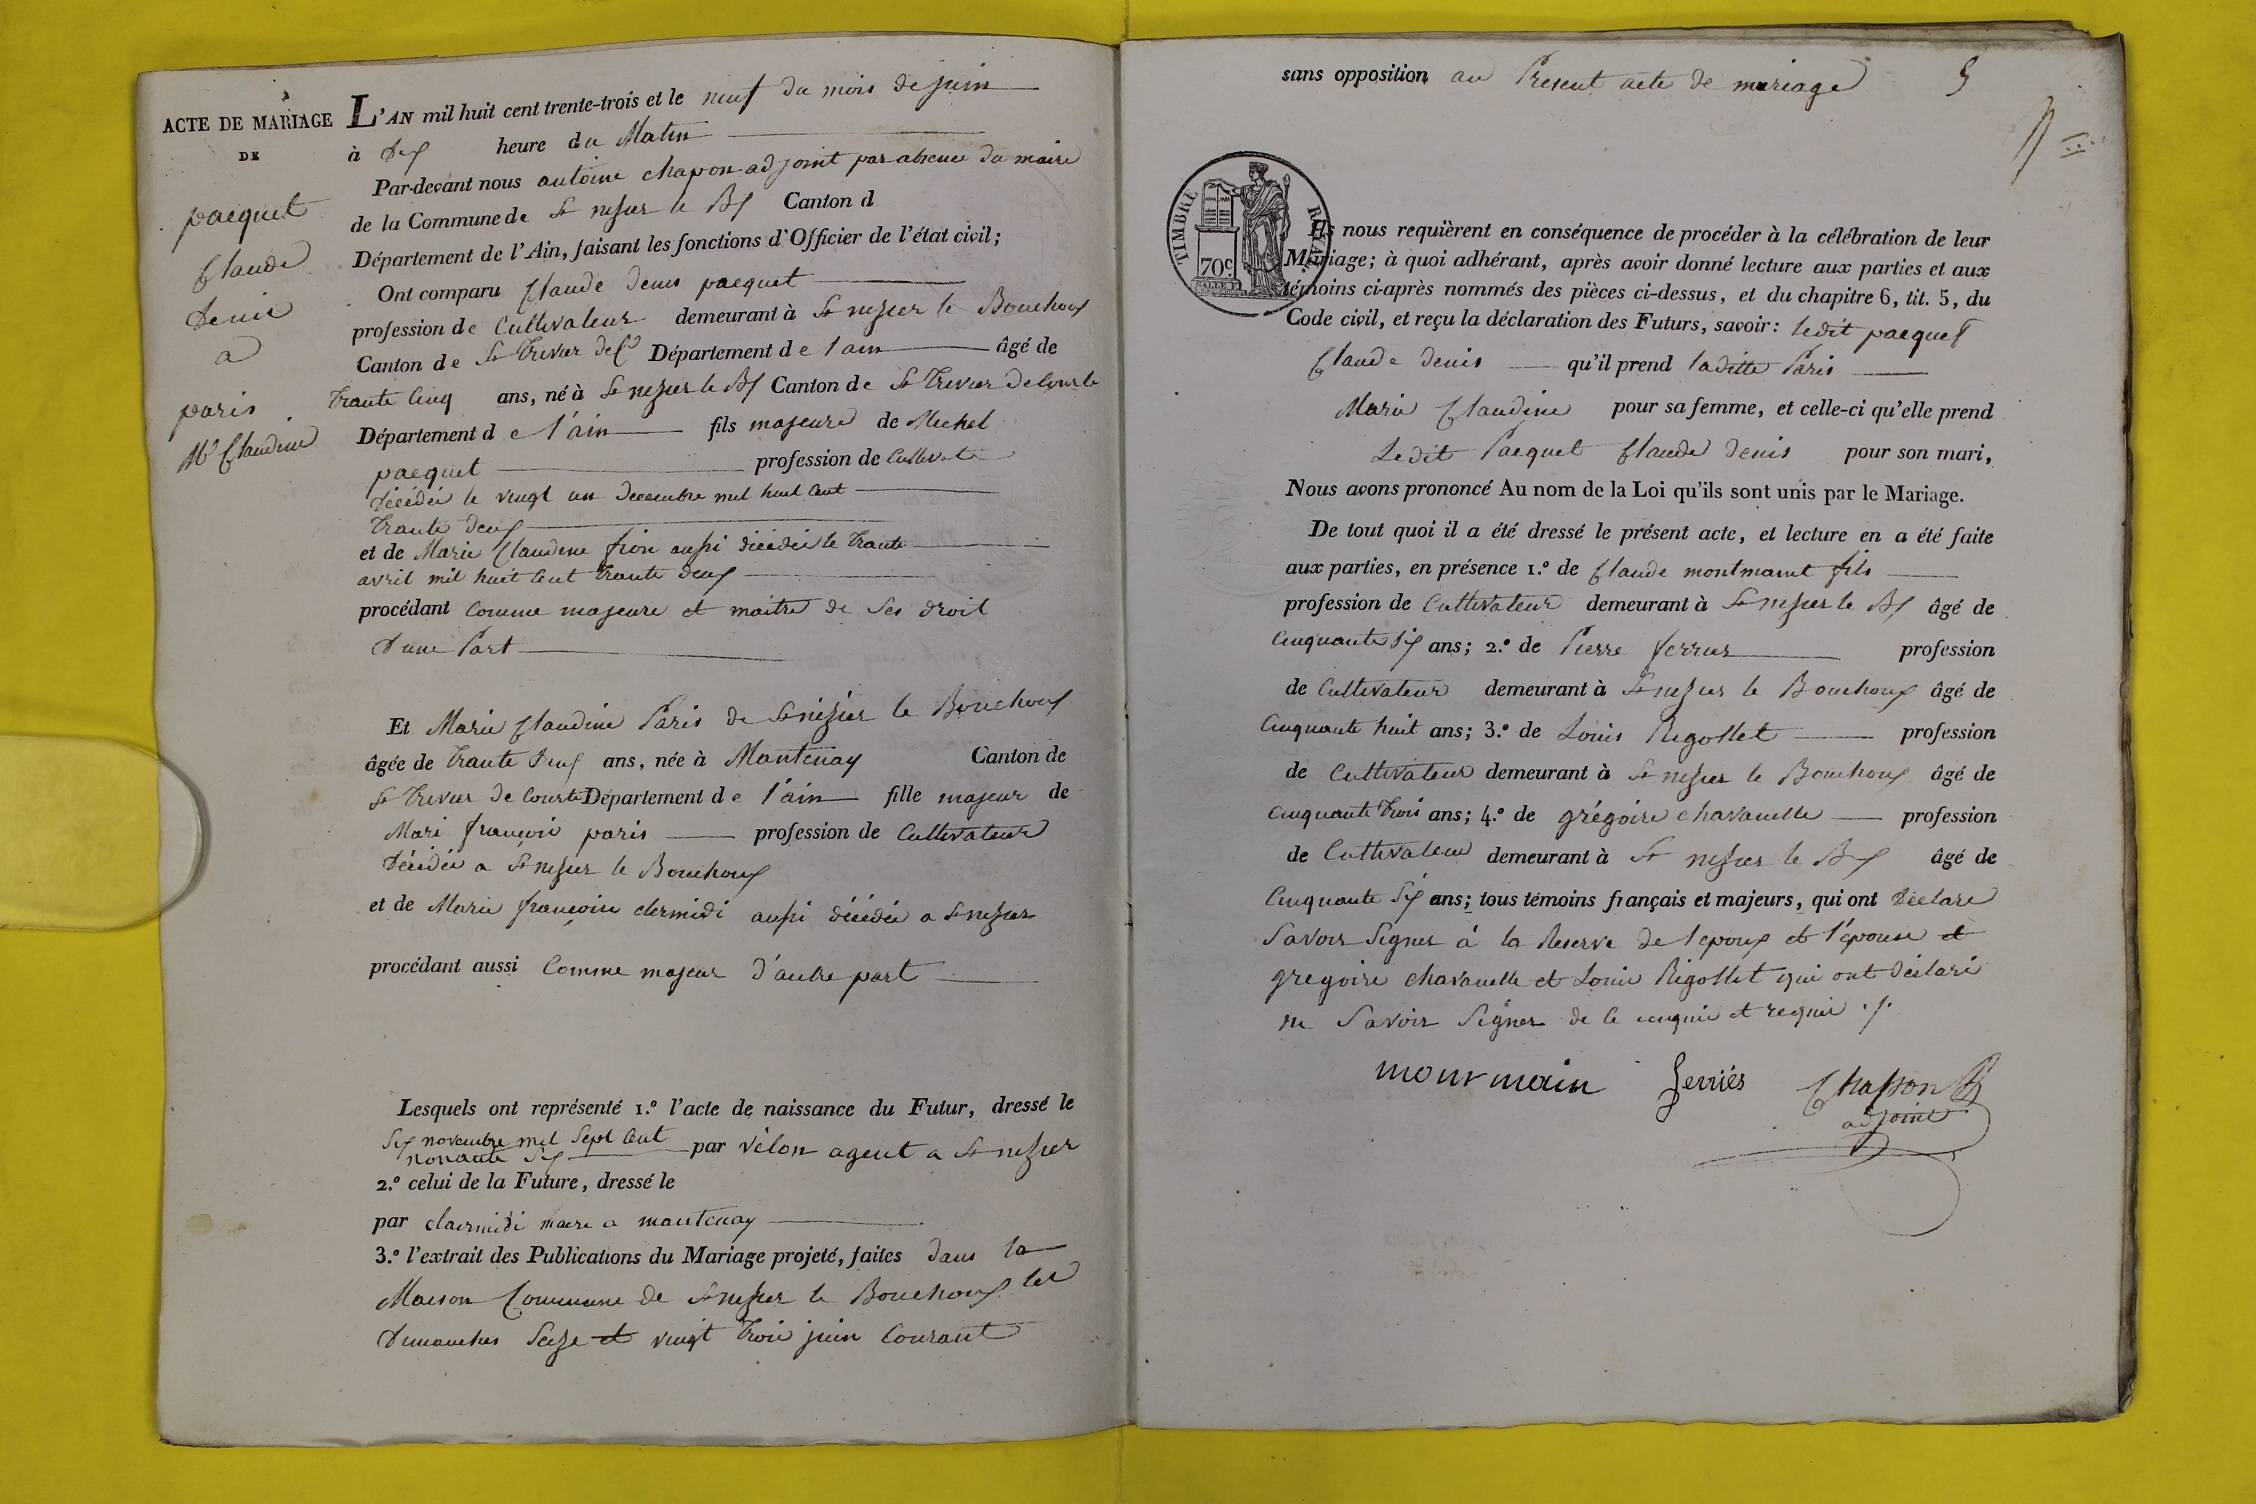 ACTE DE MARIAGE
DE
pacquet
Claude
denis
a
paris
Me Claudine
L'AN mil huit cent trente-trois et le neuf du mois de juin
à dix heure du Matin
Par-devant nous antoine chapon adjoint par absence du maire
de la Commune de St nizier le Bx Canton d
Département de l'Ain, faisant les fonctions d'Officier de l'état civil;
Ont comparu Claude denis pacquet
profession de Cultivateur demeurant à St nizier le Bouchoux
Canton de St Trivier de Cs Département de l'ain âgé de
trante Cinq ans, né à St nizier le Bx Canton de St Trivier de Courte
Département de l'ain fils majeure de Michel
pacquet profession de Cultivate
décédée le vingt un decembre mil huit Cent
trante deux
et de Marie Claudine fion aussi décédée le trante
avril mil huit Cent trante deux
procédant Comme majeure et maitre de Ses droit
d'une Part
Et Marie Claudine Paris de St nizier le Bouchoux
âgée de trante deux ans, née à Mantenay Canton de
St Trivier de Courte Département de l'ain fille majeur de
Mari françois paris profession de Cultivateur
décédée a St nizier le Bouchoux
et de Marie françoise clermidi aussi décédée a St nizier
procédant aussi Comme majeur d'autre part
Lesquels ont représenté 1.º l'acte de naissance du Futur, dressé le
Six novembre mil Sept Cent
nonante Six par vélon agent a St nizier
2.º celui de la Future, dressé le
par clairmidi maire a mantenay
3.º l'extrait des Publications du Mariage projeté, faites dans la
Maison Commune de St nizier le Bouchoux les
dimanches Seize et vingt trois juin Courant
sans opposition au Present acte de mariage
5
TIMBRE ROYAL
70c.
Ils nous requièrent en conséquence de procéder à la célébration de leur
Mariage; à quoi adhérant, après avoir donné lecture aux parties et aux
témoins ci-après nommés des pièces ci-dessus, et du chapitre 6, tit. 5, du
Code civil, et reçu la déclaration des Futurs, savoir: ledit pacquet
Claude denis qu'il prend laditte Paris
Marie Claudine pour sa femme, et celle-ci qu'elle prend
Ledit Pacquet Claude denis pour son mari,
Nous avons prononcé Au nom de la Loi qu'ils sont unis par le Mariage.
De tout quoi il a été dressé le présent acte, et lecture en a été faite
aux parties, en présence 1.º de Claude montmaint fils
profession de Cultivateur demeurant à St nizier le Bx âgé de
Cinquante Six ans; 2.º de Pierre ferrier profession
de Cultivateur demeurant à St nizier le Bouchoux âgé de
Cinquante huit ans; 3.º de Louis Rigollet profession
de Cultivateur demeurant à St nizier le Bouchoux âgé de
Cinquante trois ans; 4.º de grégoire chavanelle profession
de Cultivateur demeurant à St nizier le Bx âgé de
Cinquante Six ans; tous témoins français et majeurs, qui ont déclaré
Savoir Signer à la Reserve de l'epoux et l'épouse et
gregoire chavanelle et Louis Rigollet qui ont déclaré
ne Savoir Signer de ce enquis et requis
mourmain ferriés Chapon
adjoint